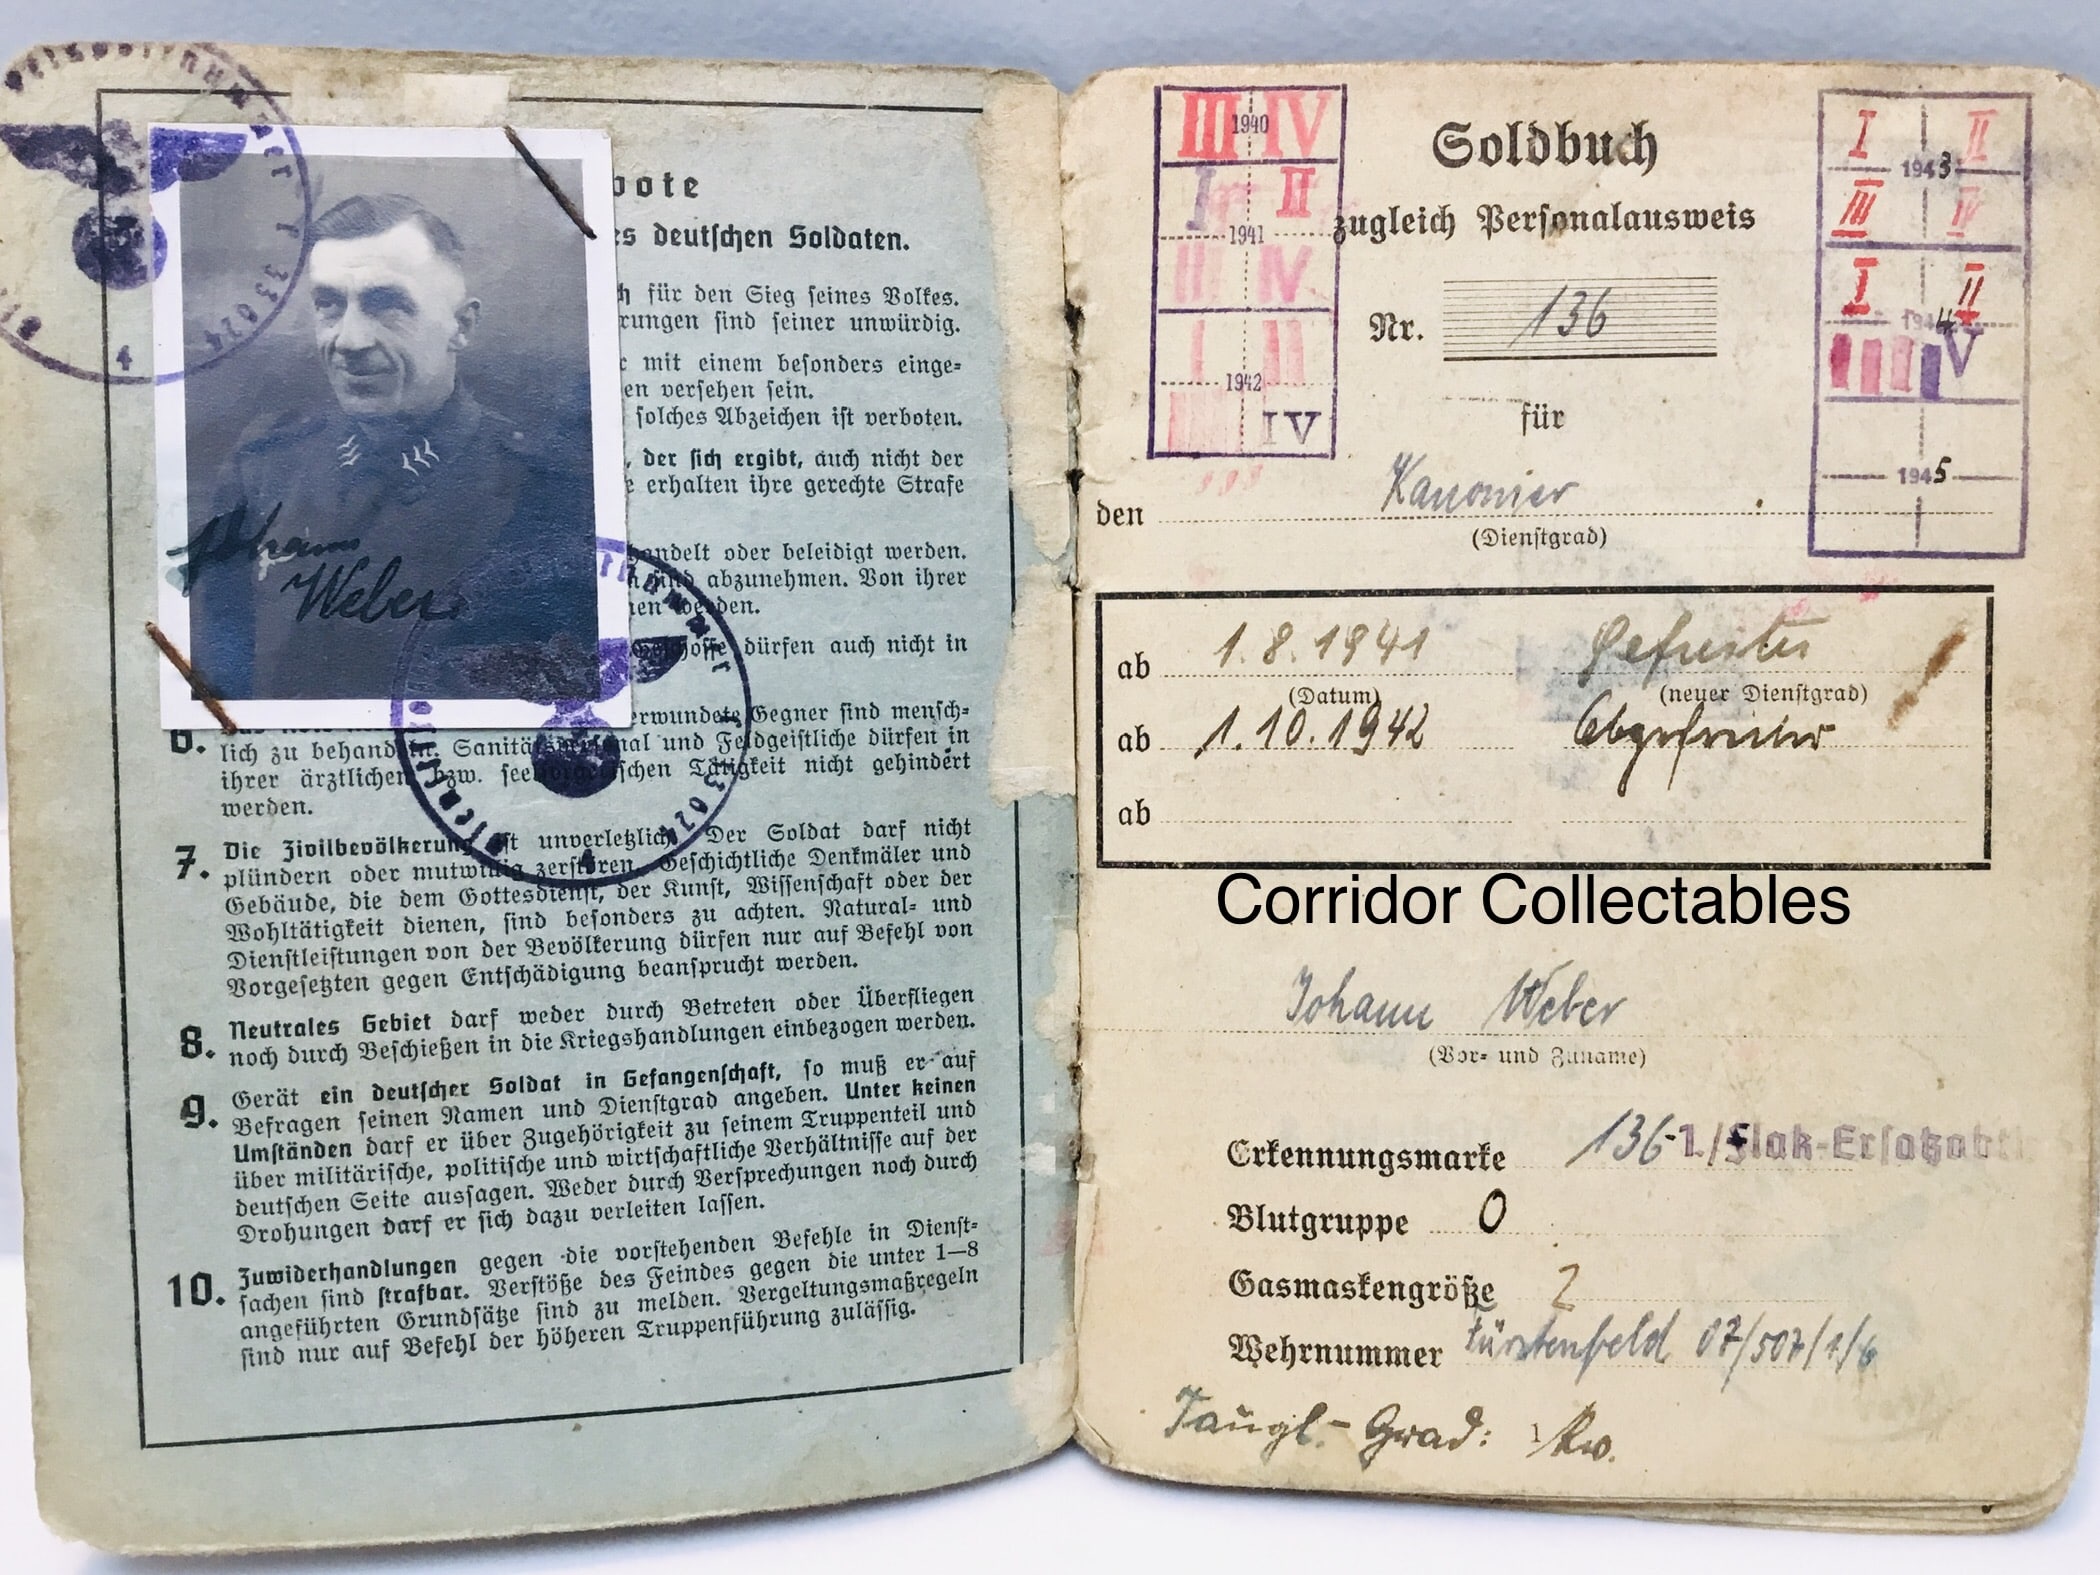 bote
es deutschen Soldaten.
h für den Sieg seines Volkes.
rungen sind seiner unwürdig.
r mit einem besonders einge=
en versehen sein.
solches Abzeichen ist verboten.
, der sich ergibt, auch nicht der
e erhalten ihre gerechte Strafe
handelt oder beleidigt werden.
n sind abzunehmen. Von ihrer
nen werden.
Geschosse dürfen auch nicht in
6.
erwundete Gegner sind mensch=
lich zu behandeln. Sanitätspersonal und Feldgeistliche dürfen in
ihrer ärztlichen bzw. seelsorgerischen Tätigkeit nicht gehindert
werden.
7. Die Zivilbevölkerung ist unverletzlich. Der Soldat darf nicht
plündern oder mutwillig zerstören. Geschichtliche Denkmäler und
Gebäude, die dem Gottesdienst, der Kunst, Wissenschaft oder der
Wohltätigkeit dienen, sind besonders zu achten. Natural= und
Dienstleistungen von der Bevölkerung dürfen nur auf Befehl von
Vorgesetzten gegen Entschädigung beansprucht werden.
8. Neutrales Gebiet darf weder durch Betreten oder Überfliegen
noch durch Beschießen in die Kriegshandlungen einbezogen werden.
9. Gerät ein deutscher Soldat in Gefangenschaft, so muß er auf
Befragen seinen Namen und Dienstgrad angeben. Unter keinen
Umständen darf er über Zugehörigkeit zu seinem Truppenteil und
über militärische, politische und wirtschaftliche Verhältnisse auf der
deutschen Seite aussagen. Weder durch Versprechungen noch durch
Drohungen darf er sich dazu verleiten lassen.
10. Zuwiderhandlungen gegen die vorstehenden Befehle in Dienst=
sachen sind strafbar. Verstöße des Feindes gegen die unter 1—8
angeführten Grundsätze sind zu melden. Vergeltungsmaßregeln
sind nur auf Befehl der höheren Truppenführung zulässig.
Johann
Weber
33024
4
33024
4
III 1940 IV
I II
1941
III IV
I II
1942
IV
Soldbuch
zugleich Personalausweis
Nr. 136
für
I II
1943
III IV
I II
1944
IV
1945
den Kanonier
(Dienstgrad)
ab 1.8.1941 Gefreiter
(Datum) (neuer Dienstgrad)
ab 1.10.1942 Obgefreiter
ab
Corridor Collectables
Johann Weber
(Vor= und Zuname)
Erkennungsmarke 136-1./Flak-Ersatzabtl.
Blutgruppe O
Gasmaskengröße 2
Wehrnummer Fürstenfeld 07/507/1/6
Taugl.- Grad: Kv.